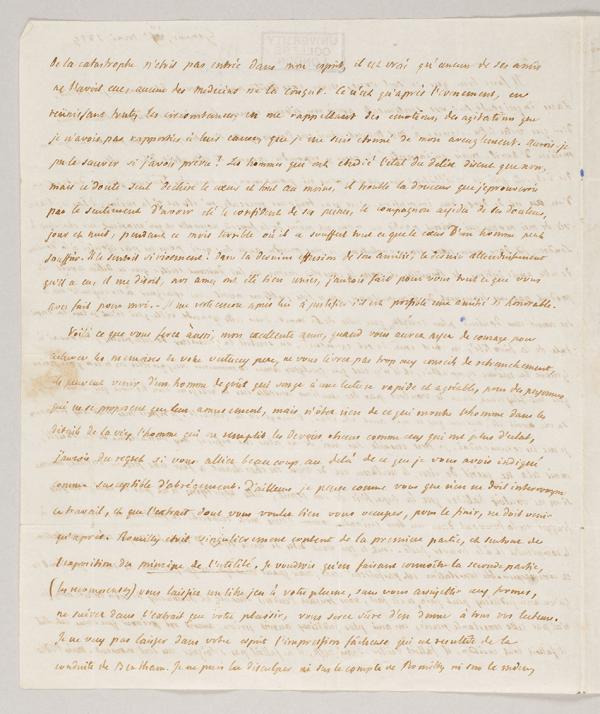 de la catastrophe n'etoit pas entrée dans mon esprit, il est vrai qu'aucun de ses amis
ne l'avoit eue, aucun des medecins ne l'a conçue. Ce n'est qu'après l'evenement, en
réunissant toutes les circonstances, en me rappellant des emotions, des agitations que
je n'avois pas rapportées à leurs causes, que je me suis étonné de mon aveuglement. aurois je
pu le sauver si j'avois prévu? Les hommes qui ont étudié l'état du delire disent que non,
mais ce doute seul déchire le cœur et tout au moins, il trouble la douceur que j'eprouverois
par le sentiment d'avoir été le confident de ses peines, le compagnon assidu de ses douleurs,
jour et nuit, pendant ce mois terrible où il a souffert tout ce que le cœur d'un homme peut
souffrir. Il le sentoit si vivement! dans la derniere effusion de son amitié, le dernier attendrissement
qu'il a eu, il me disoit, nos ames ont été bien unies, j'aurois fait pour vous tout ce que vous
avez fait pour moi. me voilà encore après lui à justifier s'il est possible une amitié si honorable.
Voilà ce que vous ferez aussi, mon excellente amie, quand vous aurez assez de courage pour
achever les memoires de votre vertueux pere, ne vous livrez pas trop aux conseils de retranchement,
ils peuvent venir d'un homme de goût qui songe à une lecture rapide et agréable, pour des personnes
qui ne se proposent que leur amusement, mais n'ôtez rien de ce qui montre l'homme dans les
détails de la vie, l'homme qui en remplit les devoirs obscurs comme ceux qui ont plus d'eclat,
j'aurois du regret si vous alliez beaucoup au delà de ce que je vous avois indiqué
comme susceptible d'abrégement. D'ailleurs je pense comme vous que rien ne doit interrompre
ce travail, et que l'extrait dont vous voulez bien vous occuper, pour le finir, ne doit venir
qu'après. Romilly etoit singulierement content de la premiere partie, et surtout de
l'exposition du principe de l'utilité. Je voudrois qu'en faisant connoitre la seconde partie,
(les recompenses) vous laissiez un libre jeu à votre plume, sans vous assujettir aux formes,
ne suivez dans l'extrait que votre plaisir, vous serez sûre d'en donner à tous vos lecteurs.
Je ne veux pas laisser dans votre esprit l'impression fâcheuse qui est resultée de la
conduite de Bentham. Je ne puis le disculper ni sur le compte de Romilly ni sur le mien,